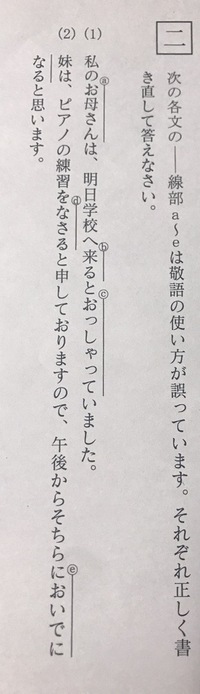 二
次の各文の――線部a～eは敬語の使い方が誤っています。それぞれ正しく書
き直して答えなさい。
(1) 私のお母さんは、明日学校へ来るとおっしゃっていました。
ⓐ ⓑ ⓒ
(2) 妹は、ピアノの練習をなさると申しておりますので、午後からそちらにおいでに
ⓓ ⓔ
なると思います。